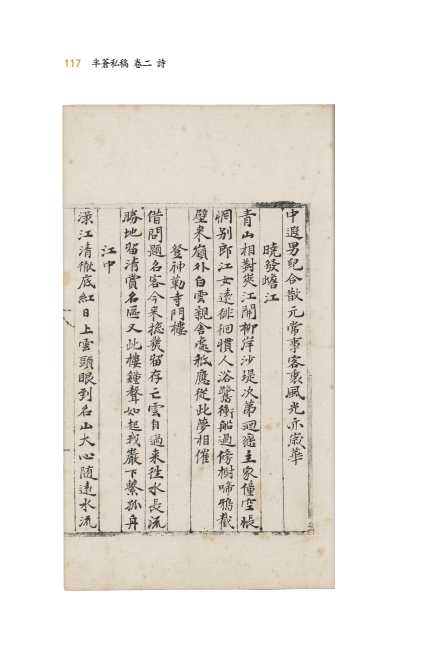 117 半蒼私稿 卷二 詩
中遐男兒合散元常事客裏風光亦歲華
曉發蟾江
青山相對夾江開柳岸沙堤次第廻戀主家僮空悵
惘別郎江女遠徘徊慣人浴鷺衝船過傍樹啼鴉截
壁來嶺外白雲親舍處秪應從此夢相催
登神勒寺門樓
借問題名客今來摠幾留存亡雲自過來往水長流
勝地留清賞名區又此樓鐘聲如起我巖下繫孤舟
江中
漢江清徹底紅日上雲頭眼到名山大心隨遠水流